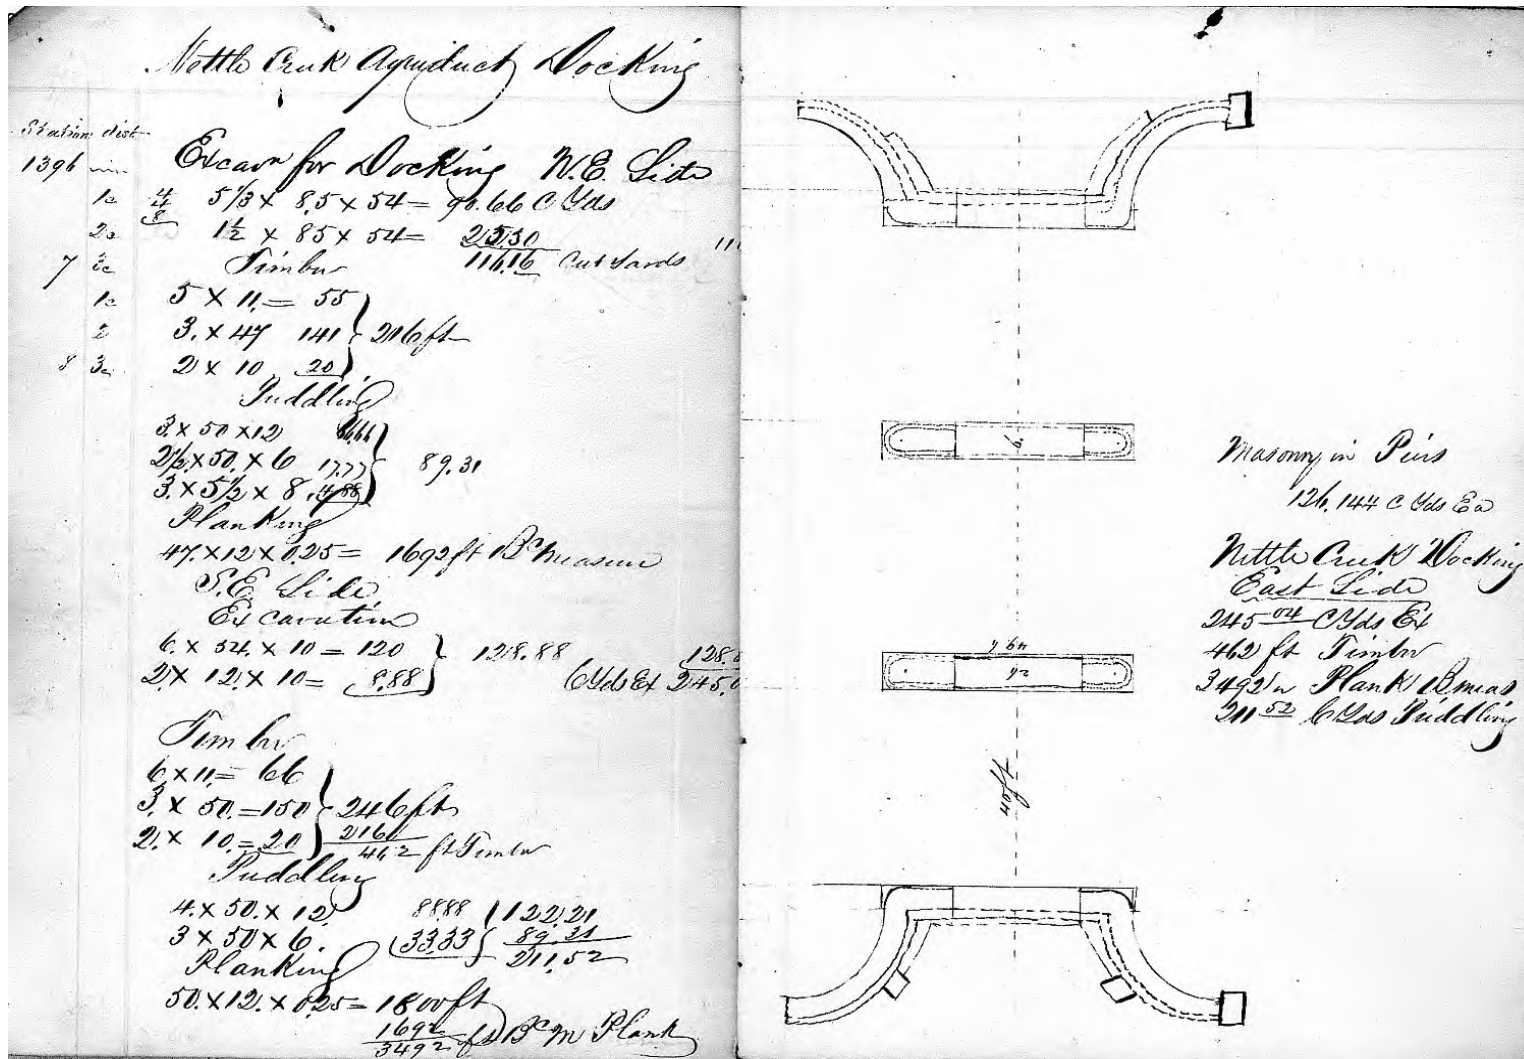 Nettle Creek Aqueduct Docking
Station dist
1396
Excavn for Docking N.E. Side
1c 4 5 1/3 x 8.5 x 54 = 90.66 C Yds
4
8
2c 1 1/2 x 85 x 54 = 25.50
7 3c Timber 116.16 Cut Yards
1c 5 x 11. = 55
2 3. x 47 141 216 ft
8 3c 2 x 10 20
Puddling
3. x 50 x 12 66.66
2 1/2. x 50. x 6 17.77 89.31
3. x 5 1/2 x 8. 4.88
Planking
47. x 12 x 0.25 = 1692 ft Bd Measure
S.E. Side
Excavation
6. x 54. x 10 = 120 128.88 128.8
2 x 12. x 10 = 8.88 C Yds Ex 245.0
Timber
6 x 11. = 66
3. x 50. = 150 246 ft
2. x 10. = 20 216
462 ft Timber
Puddling
4. x 50. x 12 88.88 122.21
3 x 50 x 6. 33.33 89.31
211.52
Planking
50. x 12. x 0.25 = 1800 ft
1692
3492 ft Bd M Plank
Masonry in Piers
126.144 C Yds Ea
Nettle Creek Docking
East Side
245 04 C Yds Ex
462 ft Timber
3492 " Plank B meas
211 52 C Yds Puddling